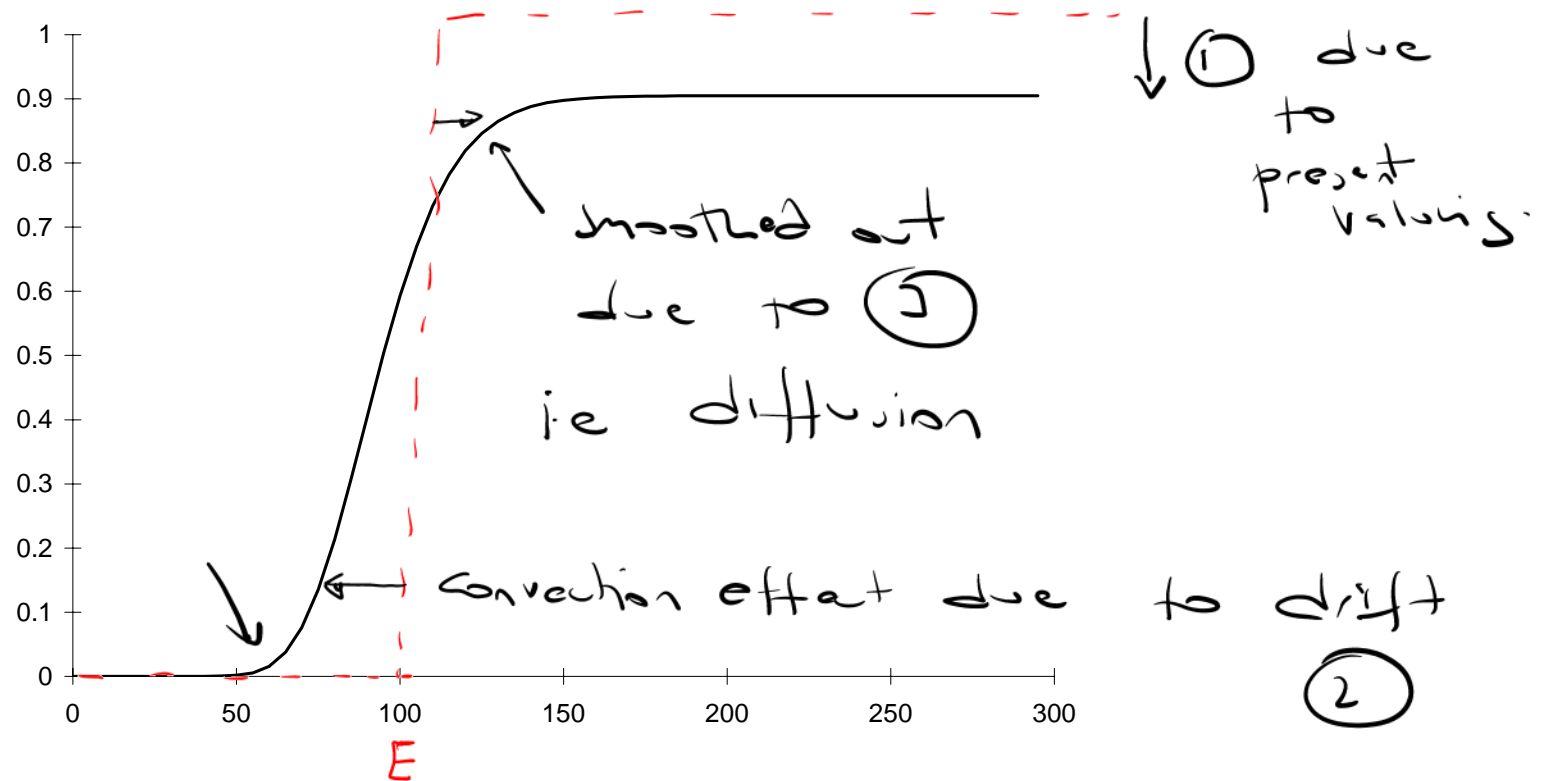 1
0.9
0.8
0.7
0.6
0.5
0.4
0.3
0.2
0.1
0
0
50
100
150
200
250
300
E
① due
to
present
valuing.
smoothed out
due to ③
i.e diffusion
convection effect due to drift
②